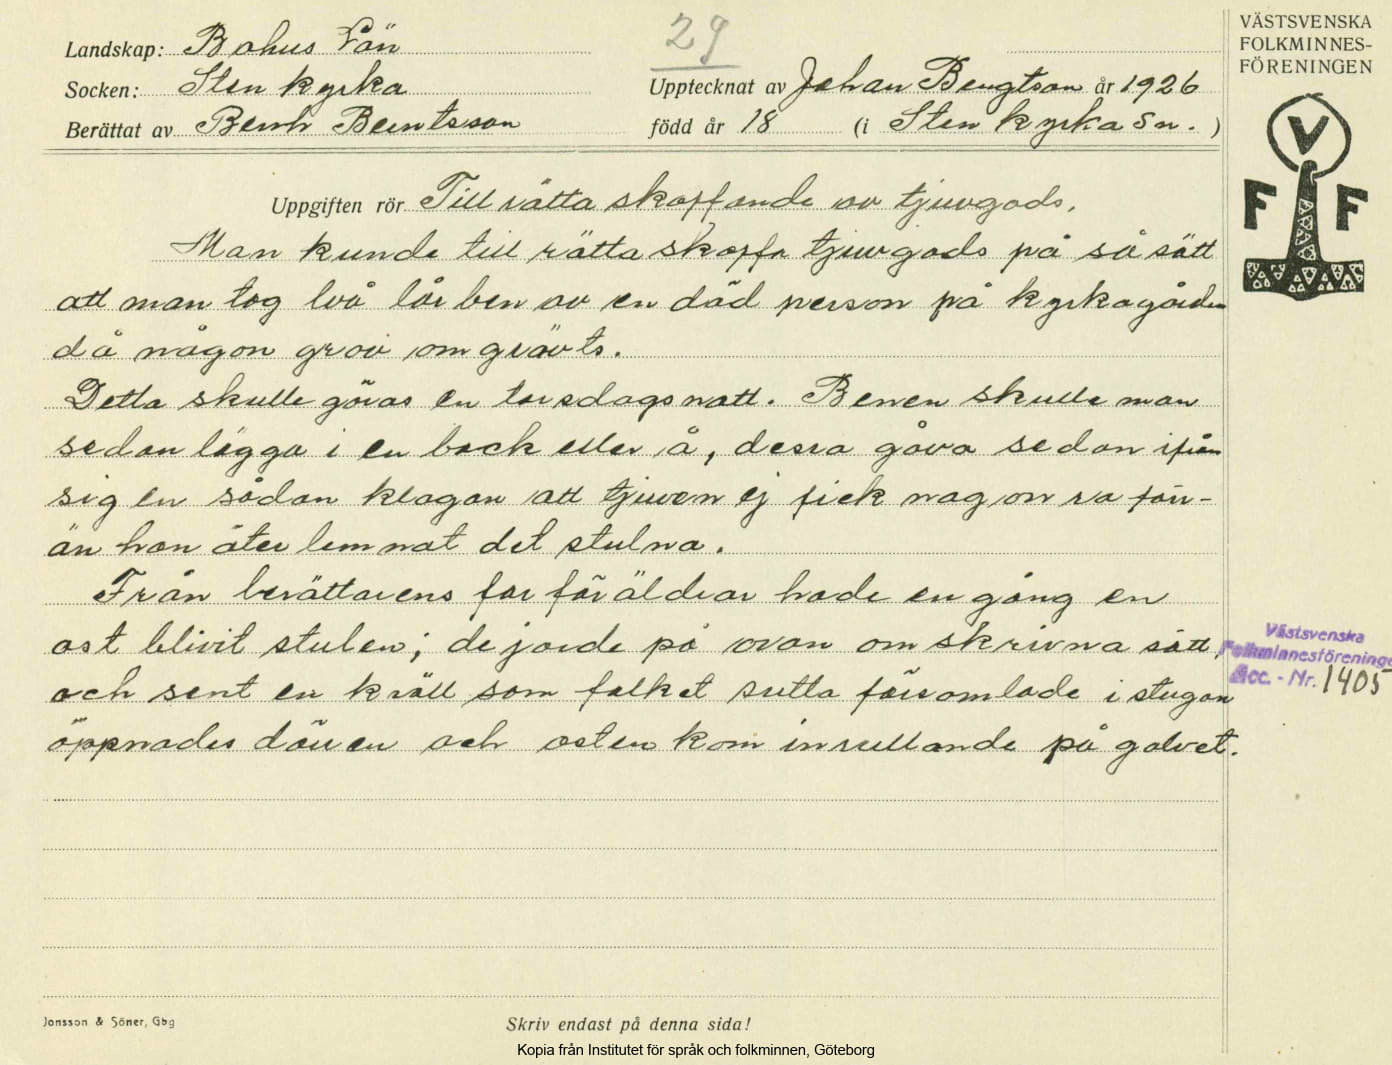 29
Landskap: Bohus Län
Socken: Stenkyrka
Berättat av Bernh Berntsson
Upptecknat av Johan Bengtson år 1926
född år 18 (i Stenkyrka Sn. )
VÄSTSVENSKA
FOLKMINNES-
FÖRENINGEN
V
F F
Uppgiften rör Till rätta skaffande av tjuvgods.
Man kunde till rätta skaffa tjuvgods på så sätt
att man tog två lårben av en död person på kyrkagården
då någon grav omgrävts.
Detta skulle göras en torsdagsnatt. Benen skulle man
sedan lägga i en beck eller å, dessa gåva sedan ifrån
sig en sådan klagan att tjuven ej fick nagon ro för-
än han åter lemnat det stulna.
Från berättarens far föräldrar hade en gång en
ost blivit stulen; de jorde på ovan omskrivna sätt,
och sent en kväll som folket sutto församlade i stugan
öppnades dörren och osten kom inrullande på golvet.
Västsvenska
Folkminnesföreningen
Acc. - Nr. 1405
Jonsson & Söner, Gbg
Skriv endast på denna sida!
Kopia från Institutet för språk och folkminnen, Göteborg